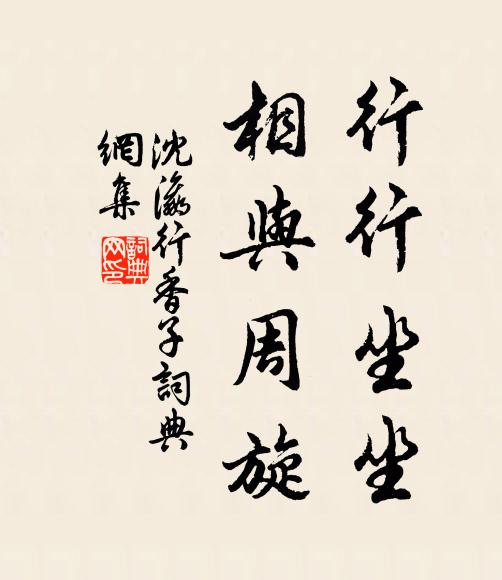 行行坐坐
相與周旋
沈瀛行香子詞典
網集
詞典网印